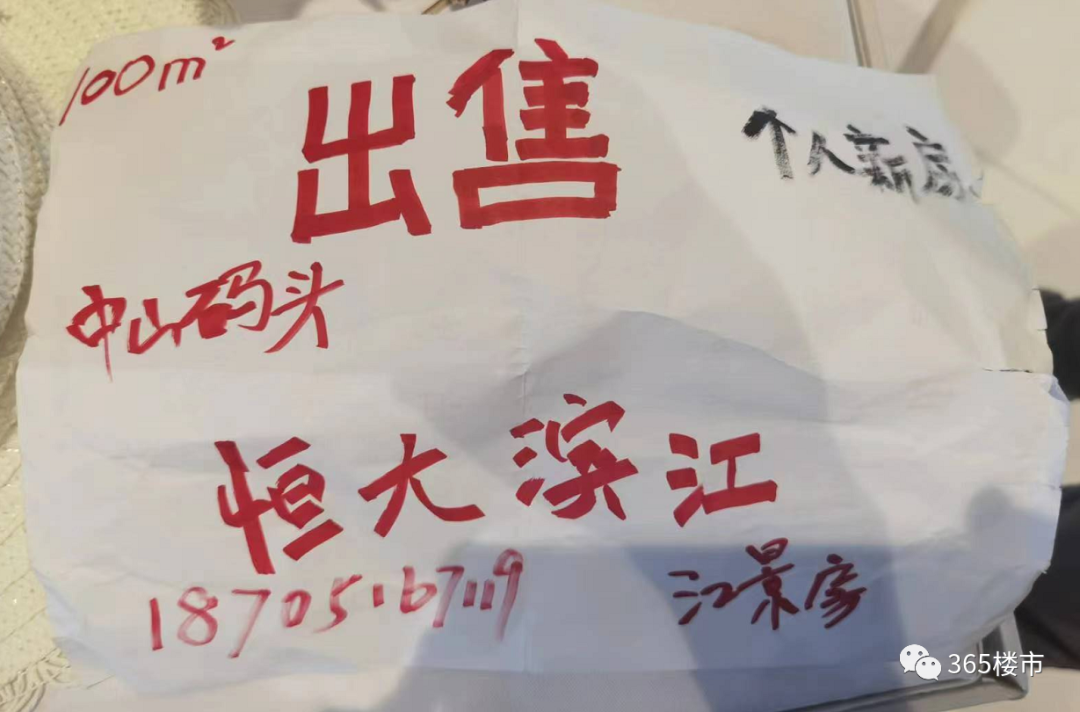 100m²
出售
个人新房
中山码头
恒大滨江
18705167119
江景房
365楼市